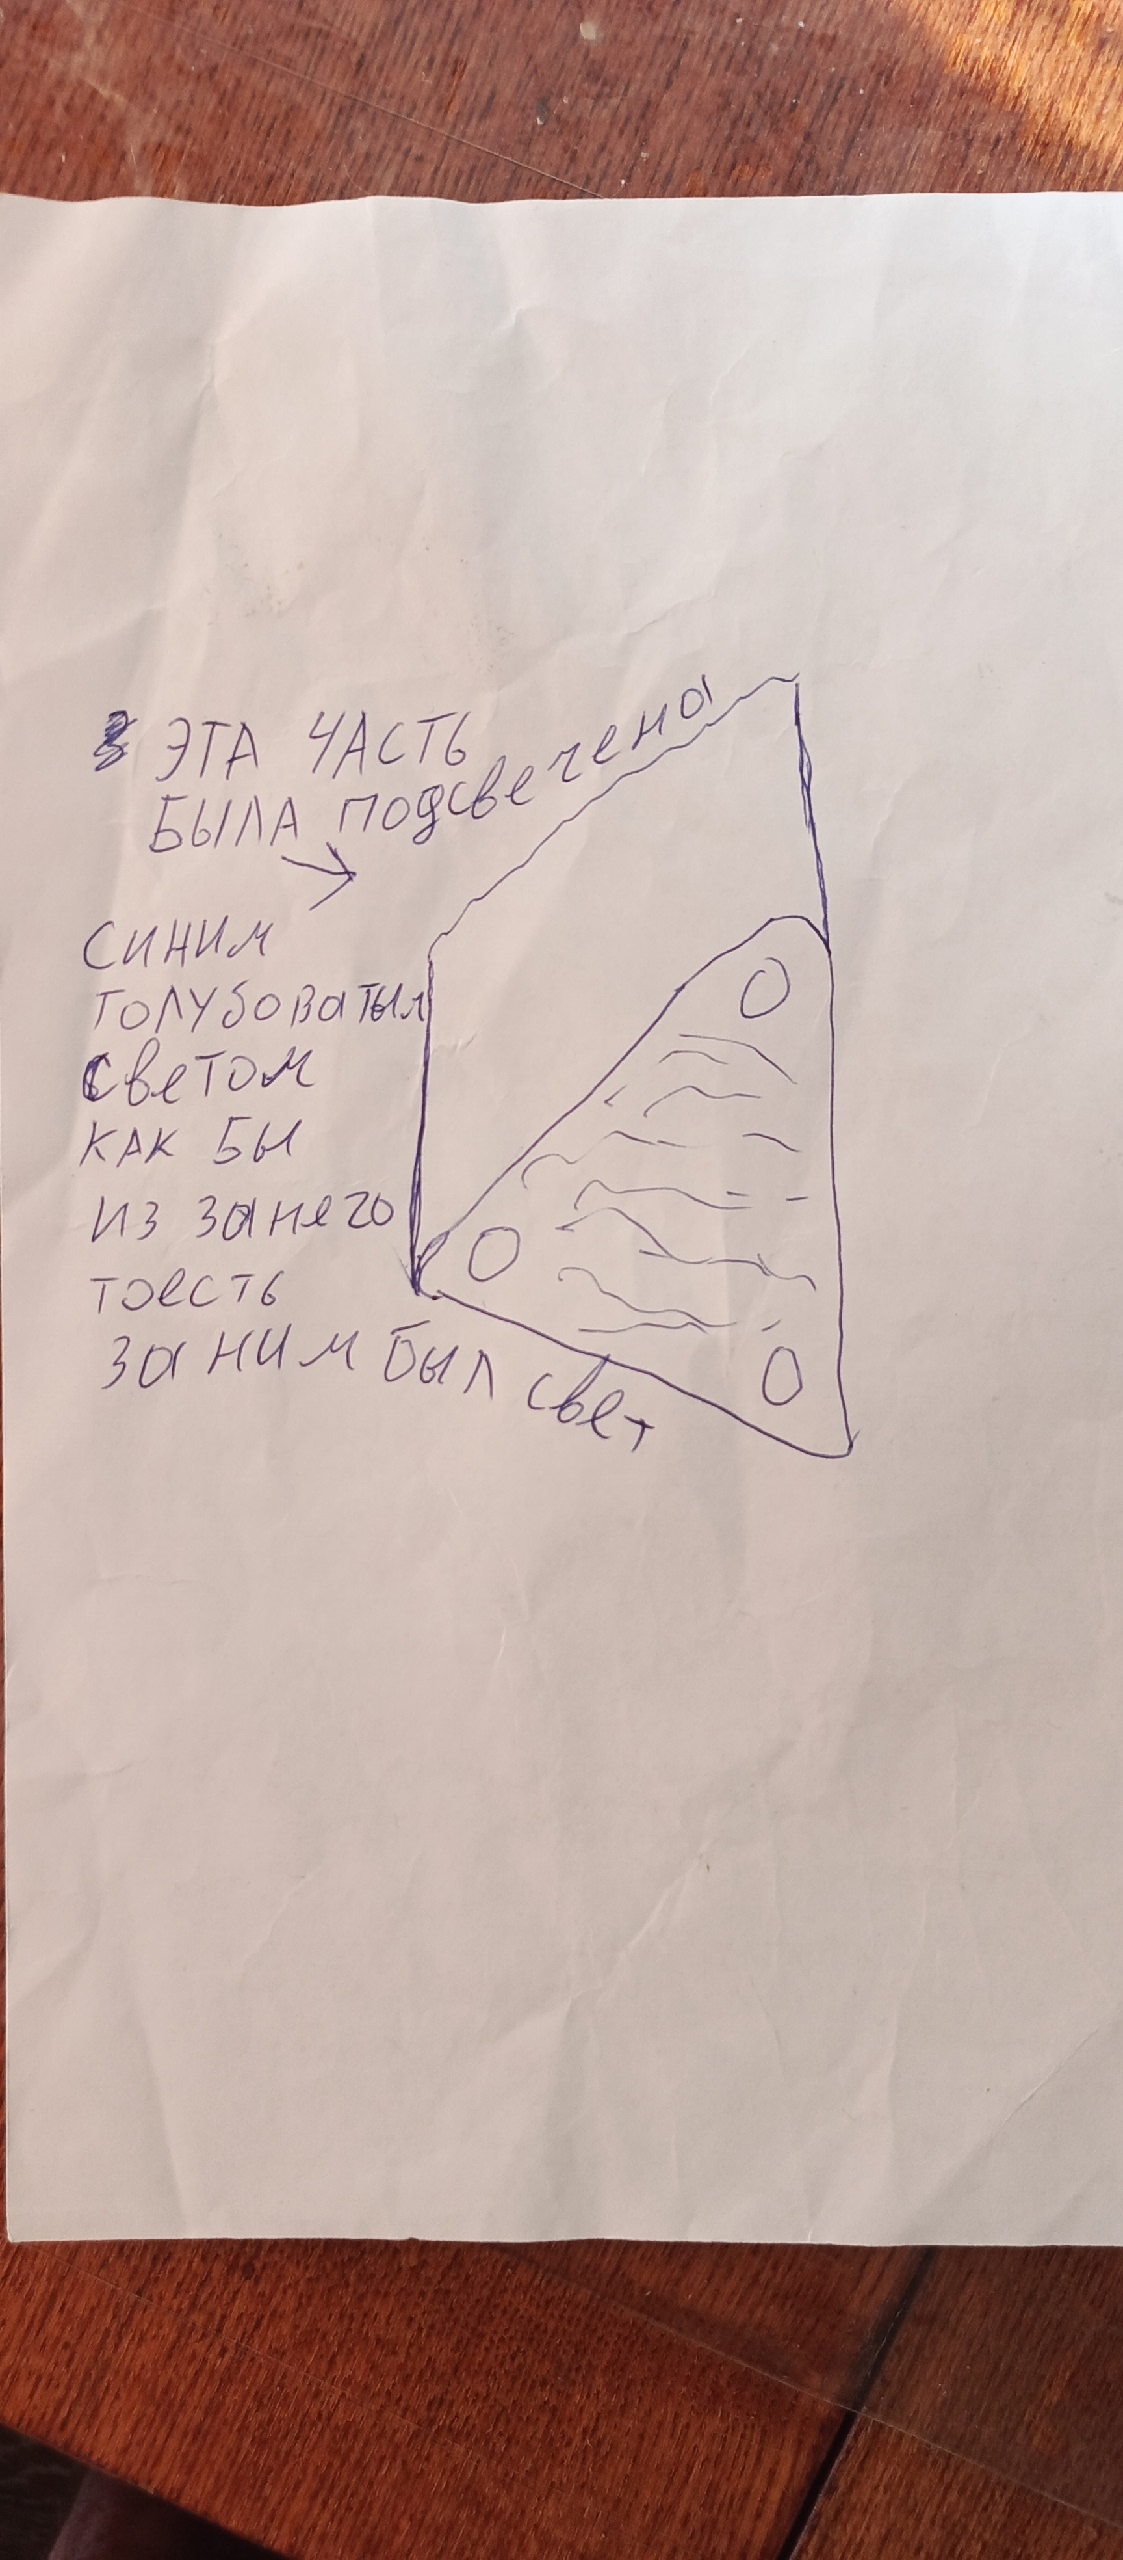 ЭТА ЧАСТЬ
БЫЛА подсвечена
СИНИМ
ГОЛУБОВАТЫМ
СВЕТОМ
КАК БЫ
ИЗ ЗА НЕГО
ТОЕСТЬ
ЗА НИМ БЫЛ СВЕТ